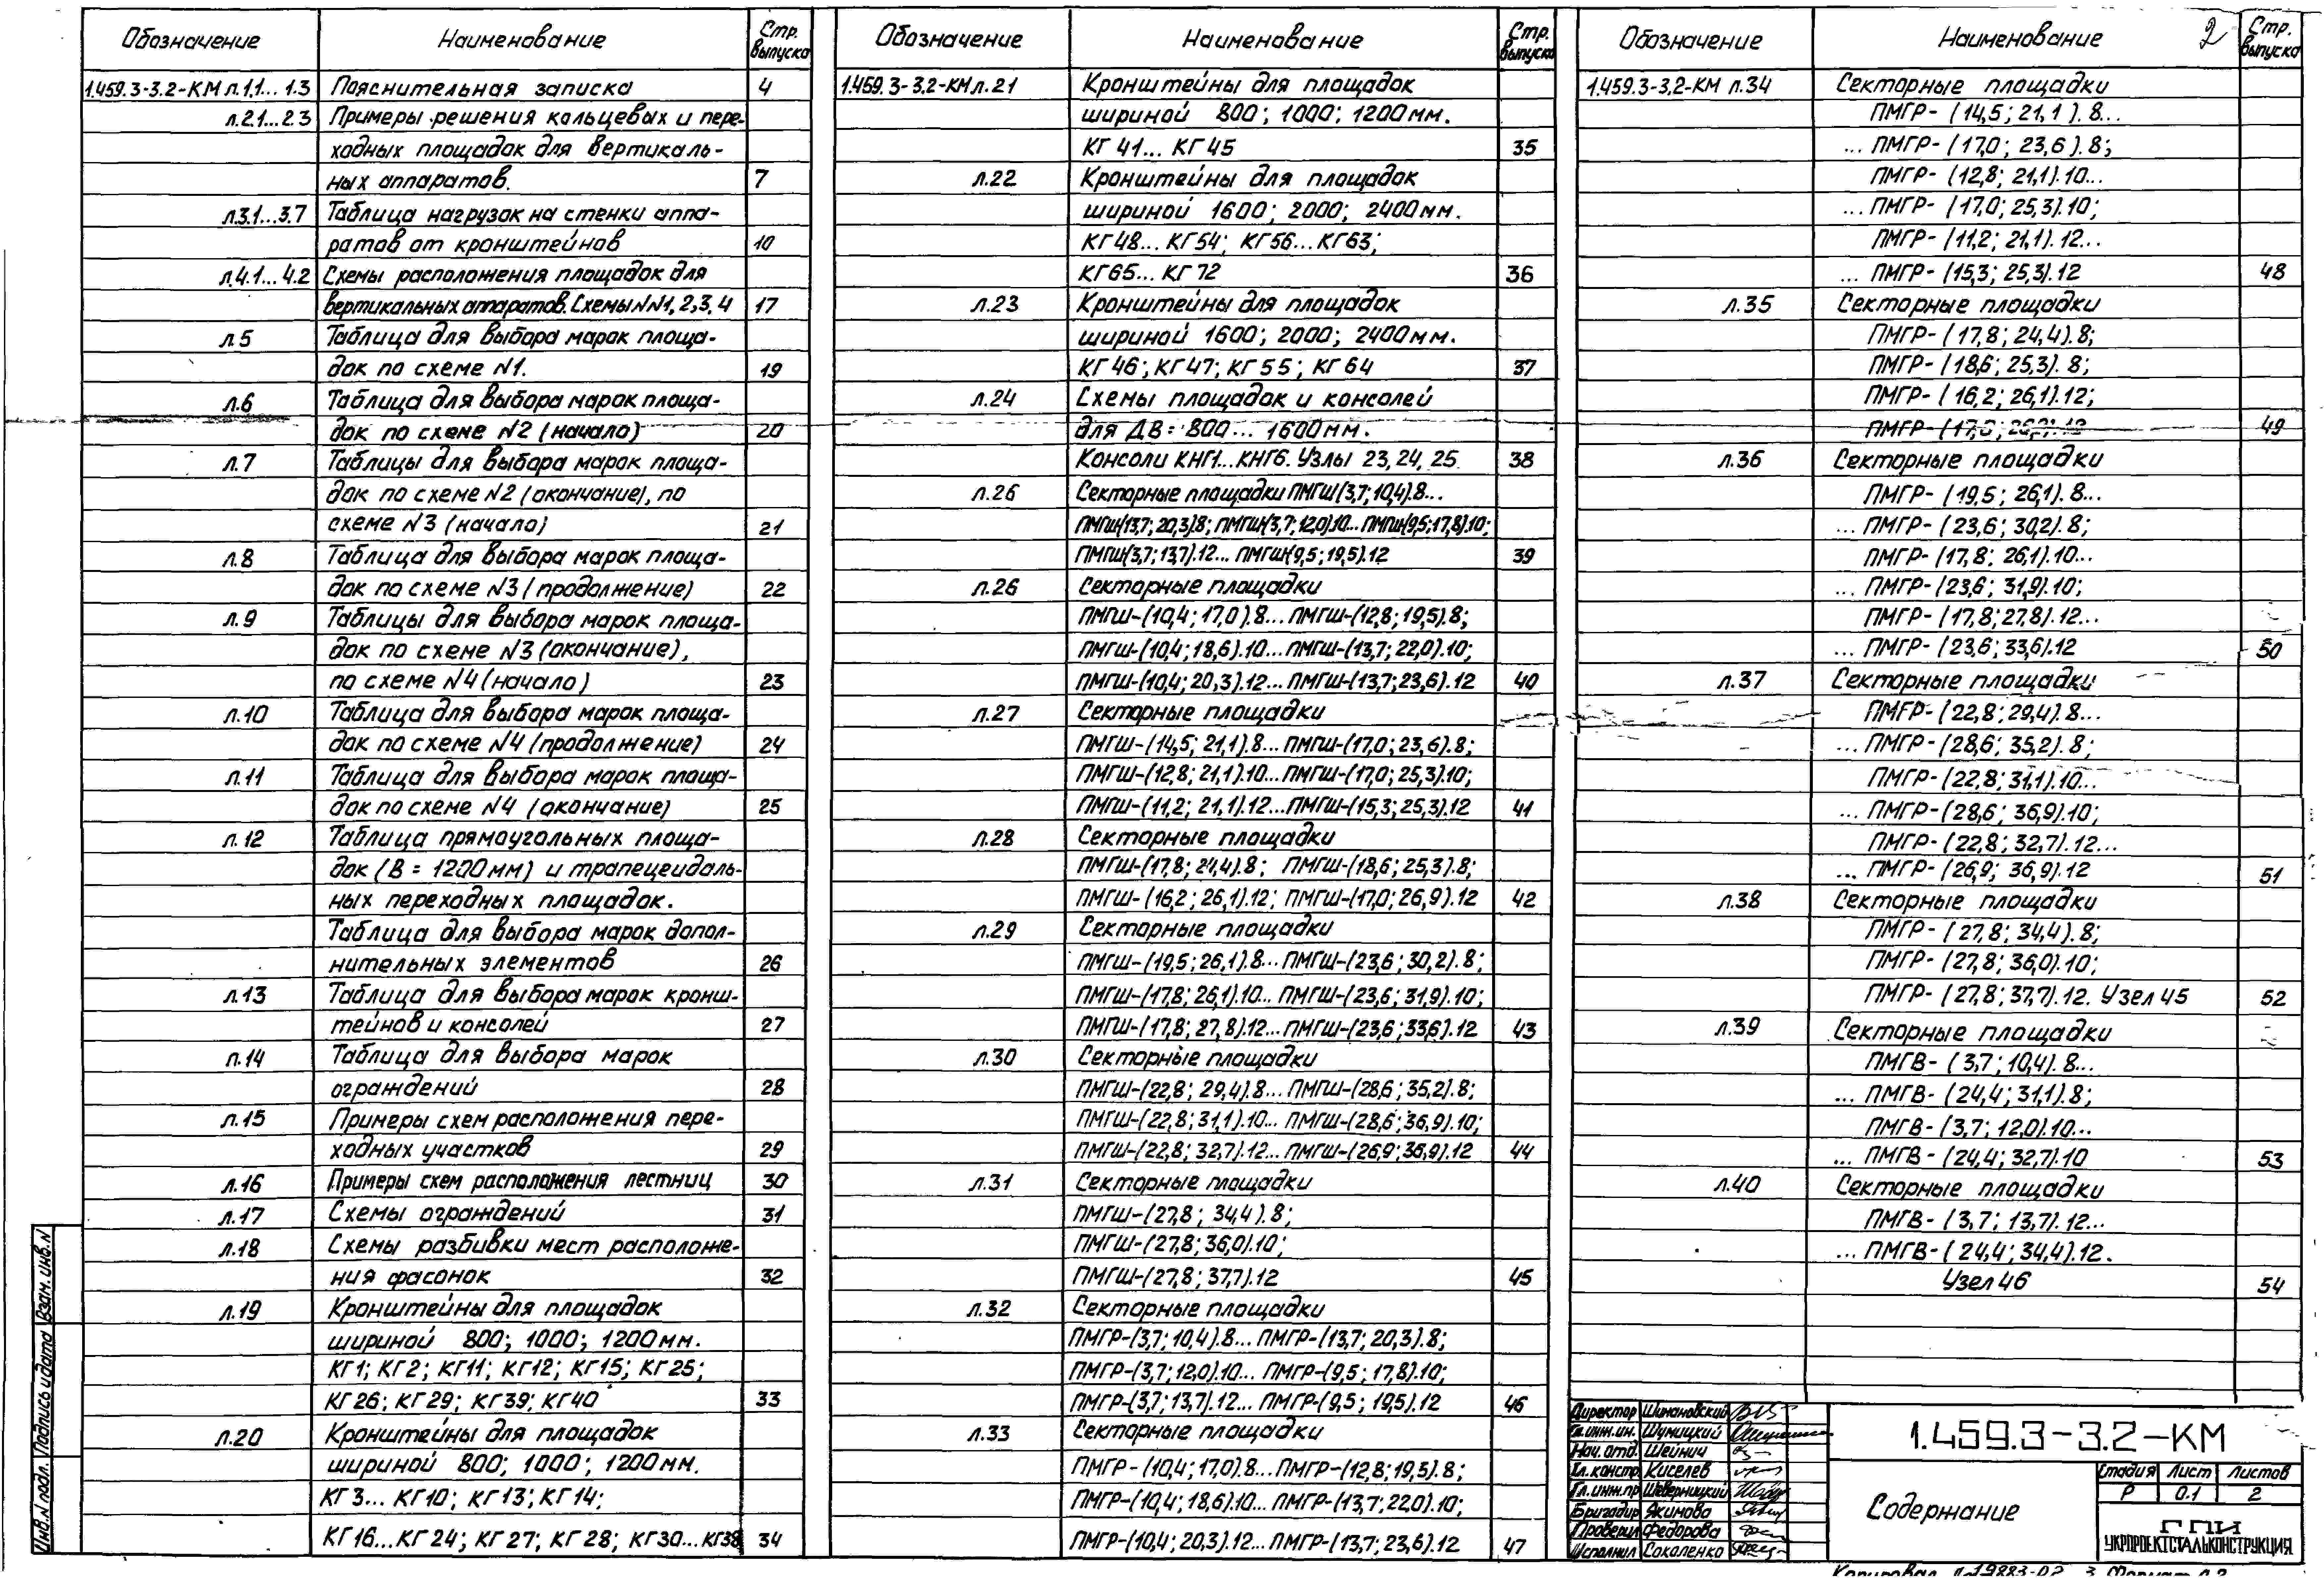 Обозначение Наименование Стр. выпуска
1.459.3-3.2-КМ л.1.1... 1.3 Пояснительная записка 4
л.2.1...2.3 Примеры решения кольцевых и пере-
ходных площадок для вертикаль-
ных аппаратов. 7
л.3.1...3.7 Таблица нагрузок на стенки аппа-
ратов от кронштейнов 10
л.4.1...4.2 Схемы расположения площадок для
вертикальных аппаратов. Схемы NN1,2,3,4 17
л.5 Таблица для выбора марок площа-
док по схеме N1. 19
л.6 Таблица для выбора марок площа-
док по схеме N2 (начало) 20
л.7 Таблицы для выбора марок площа-
док по схеме N2 (окончание), по
схеме N3 (начало) 21
л.8 Таблица для выбора марок площа-
док по схеме N3 (продолжение) 22
л.9 Таблицы для выбора марок площа-
док по схеме N3 (окончание),
по схеме N4 (начало) 23
л.10 Таблица для выбора марок площа-
док по схеме N4 (продолжение) 24
л.11 Таблица для выбора марок площа-
док по схеме N4 (окончание) 25
л.12 Таблица прямоугольных площа-
док (В = 1200мм) и трапецеидаль-
ных переходных площадок.
Таблица для выбора марок допол-
нительных элементов 26
л.13 Таблица для выбора марок кронш-
тейнов и консолей 27
л.14 Таблица для выбора марок
ограждений 28
л.15 Примеры схем расположения пере-
ходных участков 29
л.16 Примеры схем расположения лестниц 30
л.17 Схемы ограждений 31
л.18 Схемы разбивки мест расположе-
ния фасонок 32
л.19 Кронштейны для площадок
шириной 800; 1000; 1200мм.
КГ1; КГ2; КГ11; КГ12; КГ15; КГ25;
КГ26; КГ29; КГ39; КГ40 33
л.20 Кронштейны для площадок
шириной 800; 1000; 1200мм.
КГ3... КГ10; КГ13; КГ14;
КГ16...КГ24; КГ27; КГ28; КГ30...КГ38 34
Обозначение Наименование Стр. выпуска
1.459.3-3.2-КМ л.21 Кронштейны для площадок
шириной 800; 1000; 1200мм.
КГ41... КГ45 35
л.22 Кронштейны для площадок
шириной 1600; 2000; 2400мм.
КГ48... КГ54; КГ56...КГ63;
КГ65... КГ72 36
л.23 Кронштейны для площадок
шириной 1600; 2000; 2400мм.
КГ46; КГ47; КГ55; КГ64 37
л.24 Схемы площадок и консолей
для ДВ= 800... 1600мм.
Консоли КНГ1...КНГ6. Узлы 23, 24, 25 38
л.26 Секторные площадки ПМГШ(3,7; 10,4).8...
ПМГШ(13,7; 20,3).8; ПМГШ(3,7; 12,0).10...ПМГШ(9,5; 17,8).10;
ПМГШ(3,7; 13,7).12... ПМГШ(9,5; 19,5).12 39
л.26 Секторные площадки
ПМГШ-(10,4; 17,0).8...ПМГШ-(12,8; 19,5).8;
ПМГШ-(10,4; 18,6).10...ПМГШ-(13,7; 22,0).10;
ПМГШ-(10,4; 20,3).12...ПМГШ-(13,7; 23,6).12 40
л.27 Секторные площадки
ПМГШ-(14,5; 21,1).8...ПМГШ-(17,0; 23,6).8;
ПМГШ-(12,8; 21,1).10...ПМГШ-(17,0; 25,3).10;
ПМГШ-(11,2; 21,1).12...ПМГШ-(15,3; 25,3).12 41
л.28 Секторные площадки
ПМГШ-(17,8; 24,4).8; ПМГШ-(18,6; 25,3).8;
ПМГШ-(16,2; 26,1).12; ПМГШ-(17,0; 26,9).12 42
л.29 Секторные площадки
ПМГШ-(19,5; 26,1).8...ПМГШ-(23,6; 30,2).8;
ПМГШ-(17,8; 26,1).10...ПМГШ-(23,6; 31,9).10;
ПМГШ-(17,8; 27,8).12...ПМГШ-(23,6; 33,6).12 43
л.30 Секторные площадки
ПМГШ-(22,8; 29,4).8...ПМГШ-(28,6; 35,2).8;
ПМГШ-(22,8; 31,1).10...ПМГШ-(28,6; 36,9).10;
ПМГШ-(22,8; 32,7).12...ПМГШ-(26,9; 36,9).12 44
л.31 Секторные площадки
ПМГШ-(27,8; 34,4).8;
ПМГШ-(27,8; 36,0).10;
ПМГШ-(27,8; 37,7).12 45
л.32 Секторные площадки
ПМГР-(3,7; 10,4).8...ПМГР-(13,7; 20,3).8;
ПМГР-(3,7; 12,0).10...ПМГР-(9,5; 17,8).10;
ПМГР-(3,7; 13,7).12...ПМГР-(9,5; 19,5).12 46
л.33 Секторные площадки
ПМГР-(10,4; 17,0).8...ПМГР-(12,8; 19,5).8;
ПМГР-(10,4; 18,6).10...ПМГР-(13,7; 22,0).10;
ПМГР-(10,4; 20,3).12...ПМГР-(13,7; 23,6).12 47
Обозначение Наименование 2 Стр. выпуска
1.459.3-3.2-КМ л.34 Секторные площадки
ПМГР-(14,5; 21,1).8...
...ПМГР-(17,0; 23,6).8;
ПМГР-(12,8; 21,1).10...
...ПМГР-(17,0; 25,3).10;
ПМГР-(11,2; 21,1).12...
...ПМГР-(15,3; 25,3).12 48
л.35 Секторные площадки
ПМГР-(17,8; 24,4).8;
ПМГР-(18,6; 25,3).8;
ПМГР-(16,2; 26,1).12;
ПМГР-(17,0; 26,9).12 49
л.36 Секторные площадки
ПМГР-(19,5; 26,1).8...
...ПМГР-(23,6; 30,2).8;
ПМГР-(17,8; 26,1).10...
...ПМГР-(23,6; 31,9).10;
ПМГР-(17,8; 27,8).12...
...ПМГР-(23,6; 33,6).12 50
л.37 Секторные площадки
ПМГР-(22,8; 29,4).8...
...ПМГР-(28,6; 35,2).8;
ПМГР-(22,8; 31,1).10...
...ПМГР-(28,6; 36,9).10;
ПМГР-(22,8; 32,7).12...
...ПМГР-(26,9; 36,9).12 51
л.38 Секторные площадки
ПМГР-(27,8; 34,4).8;
ПМГР-(27,8; 36,0).10;
ПМГР-(27,8; 37,7).12. Узел 45 52
л.39 Секторные площадки
ПМГВ-(3,7; 10,4).8...
...ПМГВ-(24,4; 31,1).8;
ПМГВ-(3,7; 12,0).10...
...ПМГВ-(24,4; 32,7).10 53
л.40 Секторные площадки
ПМГВ-(3,7; 13,7).12...
...ПМГВ-(24,4; 34,4).12.
Узел 46 54
Директор Шимановский
Гл.инж.ин. Шумицкий
Нач. отд. Шейнич
Гл.констр. Киселев
Гл.инж.пр. Шеверницкий
Бригадир Якимова
Проверил Федорова
Исполнил Сокаленко
1.459.3-3.2-КМ
Содержание
Стадия Лист Листов
Р 0.1 2
ГПИ
УКРПРОЕКТСТАЛЬКОНСТРУКЦИЯ
Инв. N подл. Подпись и дата Взам. инв. N
Копировал 19883-02 3 Формат А2